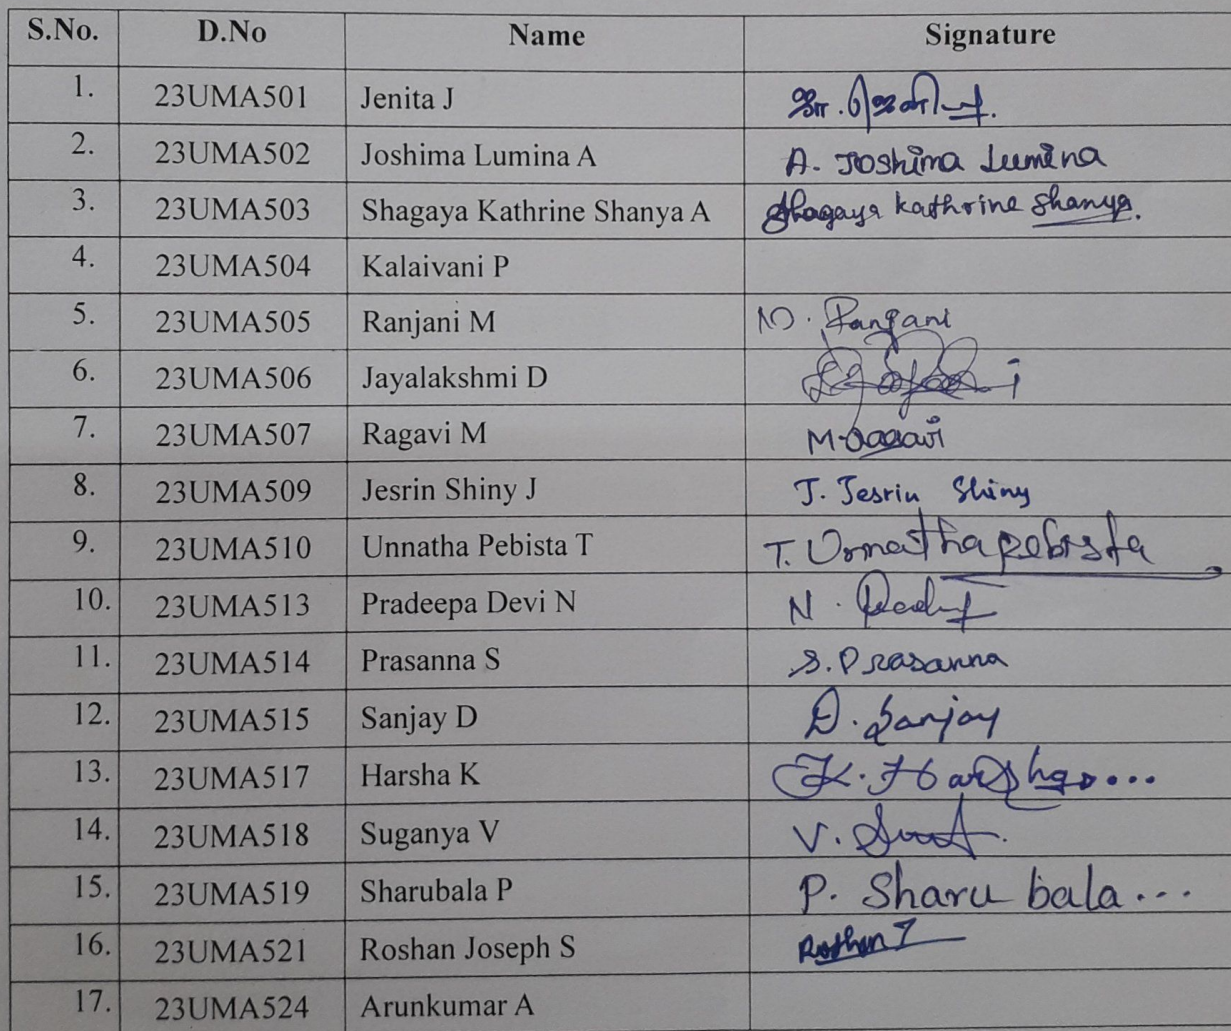 S.No. D.No Name Signature
1. 23UMA501 Jenita J ஜா. ஜெனிட்டா.
2. 23UMA502 Joshima Lumina A A. Joshima Lumina
3. 23UMA503 Shagaya Kathrine Shanya A Shagaya kathrine shanya.
4. 23UMA504 Kalaivani P
5. 23UMA505 Ranjani M M. Ranjani
6. 23UMA506 Jayalakshmi D
7. 23UMA507 Ragavi M M. Ragavi
8. 23UMA509 Jesrin Shiny J J. Jesrin Shiny
9. 23UMA510 Unnatha Pebista T T. Unnatha pebista
10. 23UMA513 Pradeepa Devi N N.
11. 23UMA514 Prasanna S S. Prasanna
12. 23UMA515 Sanjay D D. Sanjay
13. 23UMA517 Harsha K K. Harsha...
14. 23UMA518 Suganya V V.
15. 23UMA519 Sharubala P P. Sharu bala...
16. 23UMA521 Roshan Joseph S Roshan J
17. 23UMA524 Arunkumar A